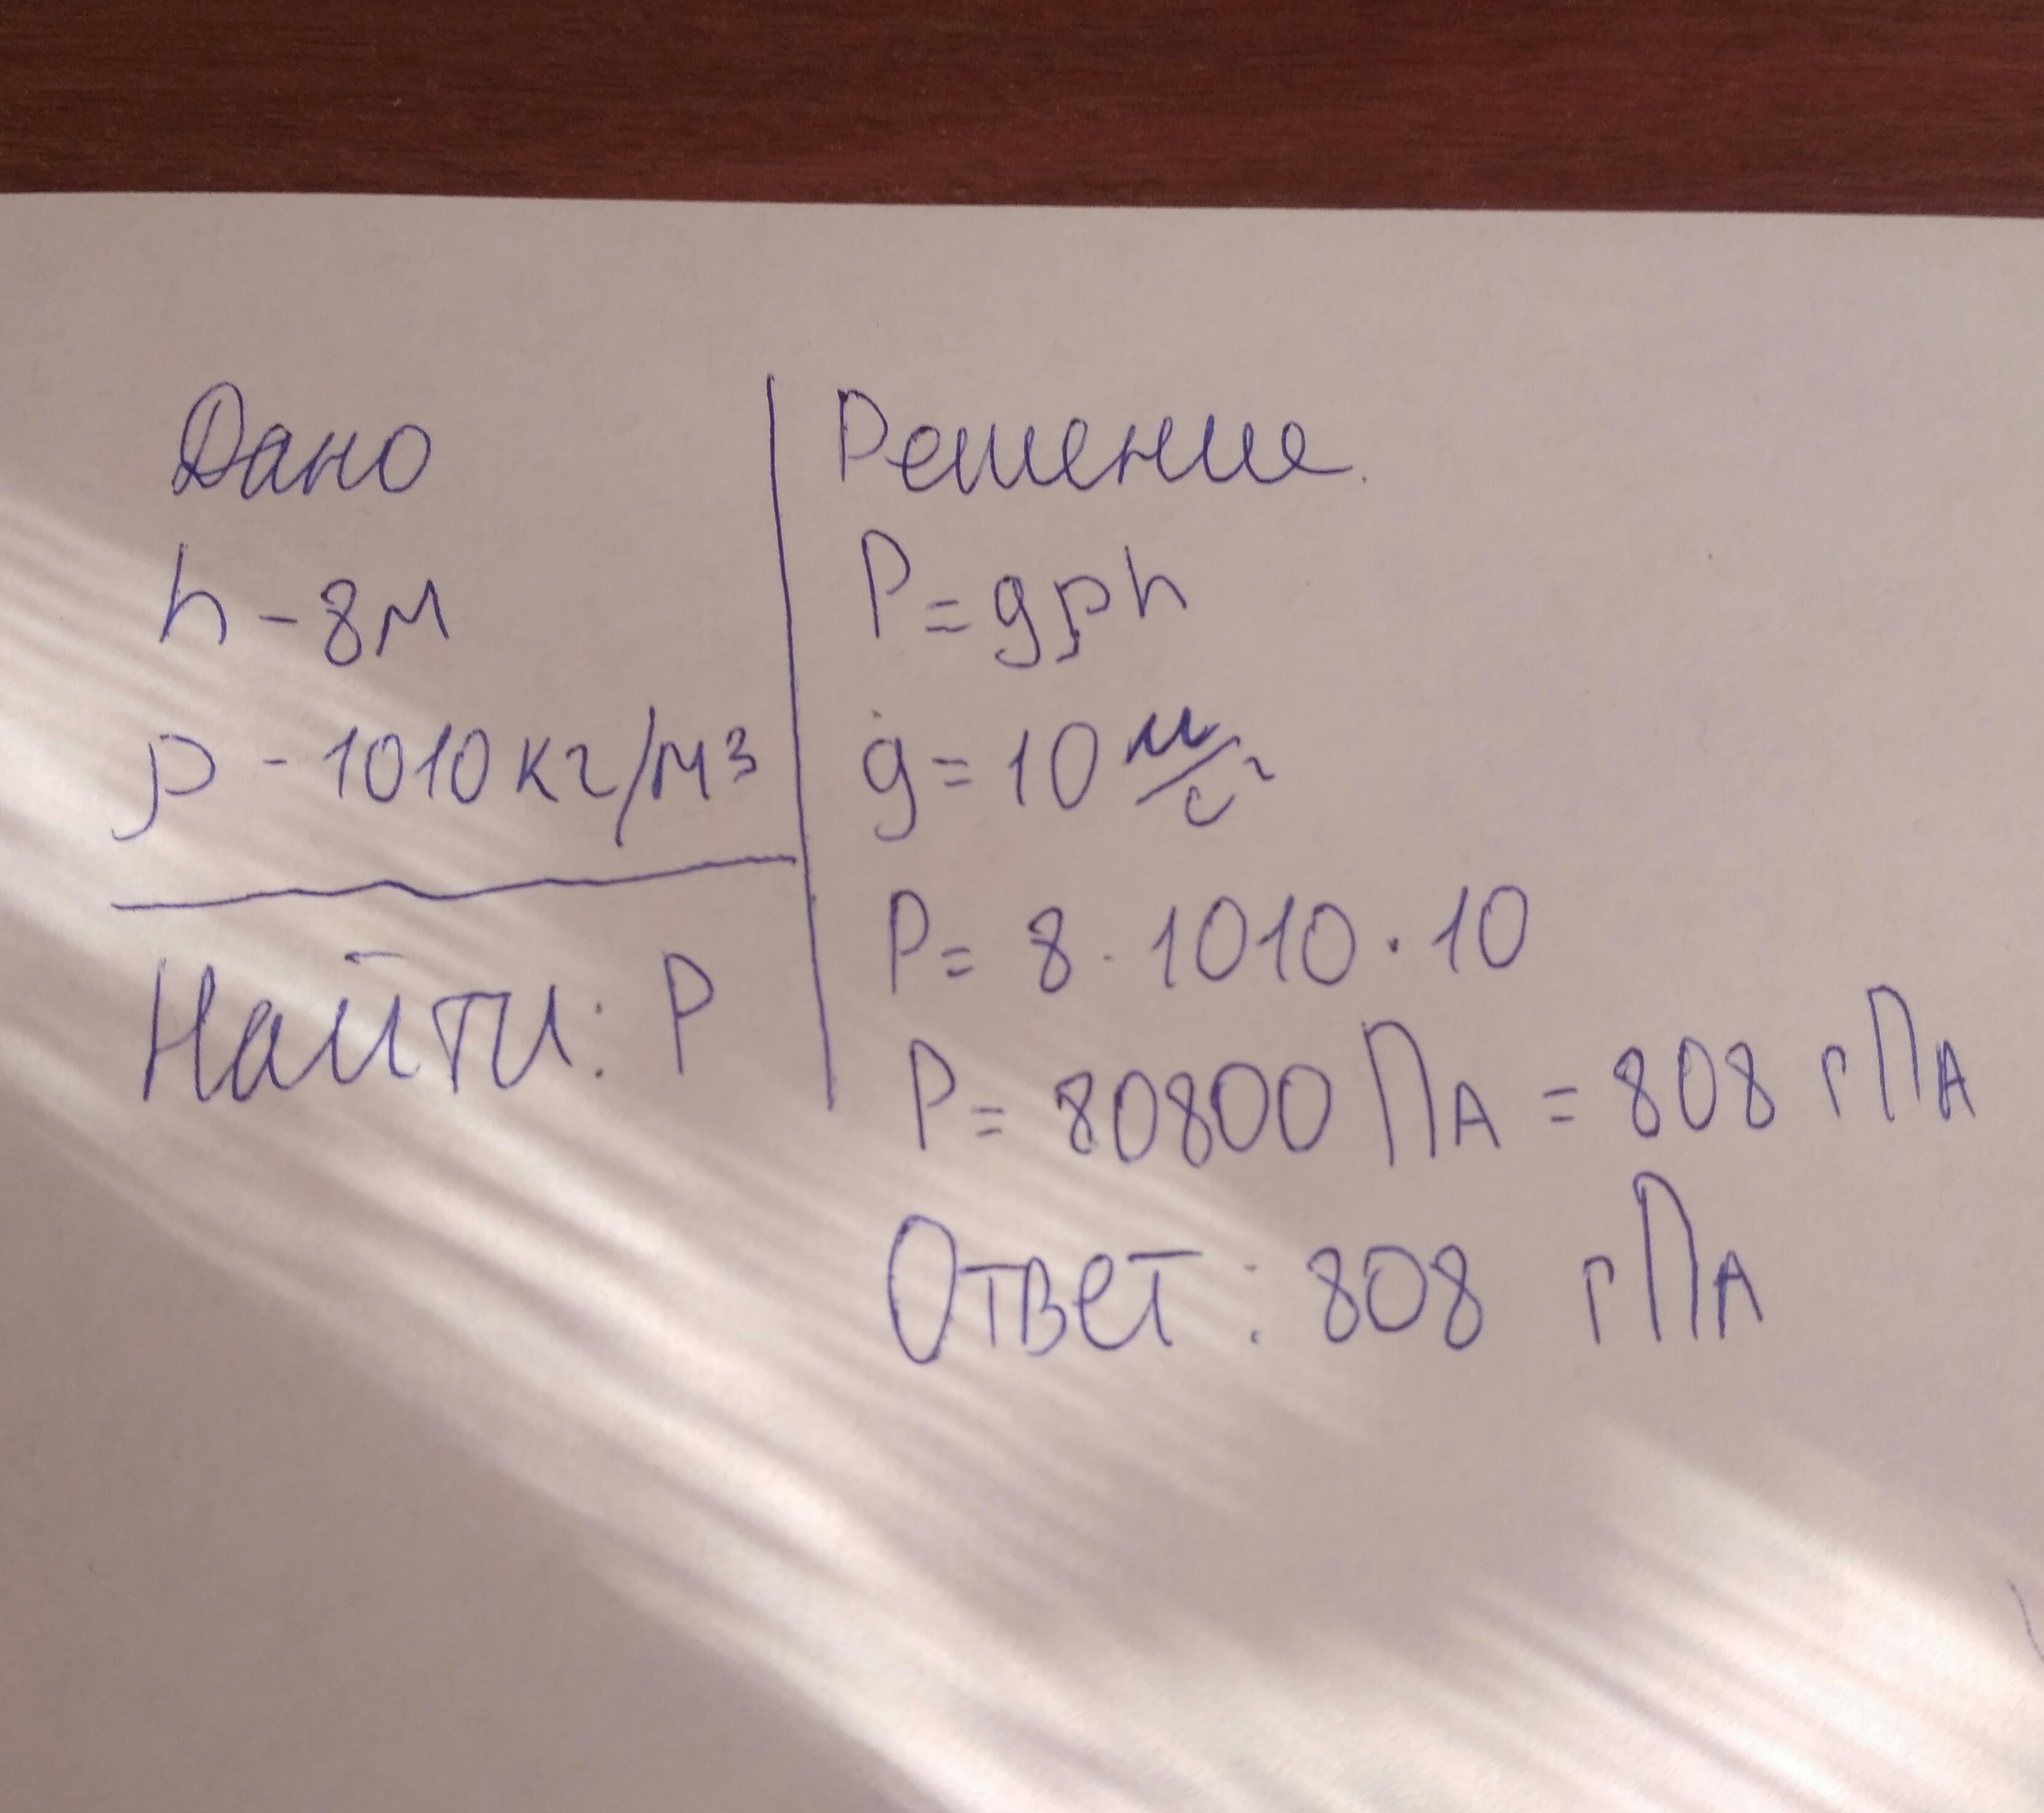 Дано
h - 8м
ρ - 1010 кг/м3
Найти: P
Решение.
P = gρh
g = 10 м/с²
P = 8 · 1010 · 10
P = 80800 ПА = 808 гПА
Ответ: 808 гПА